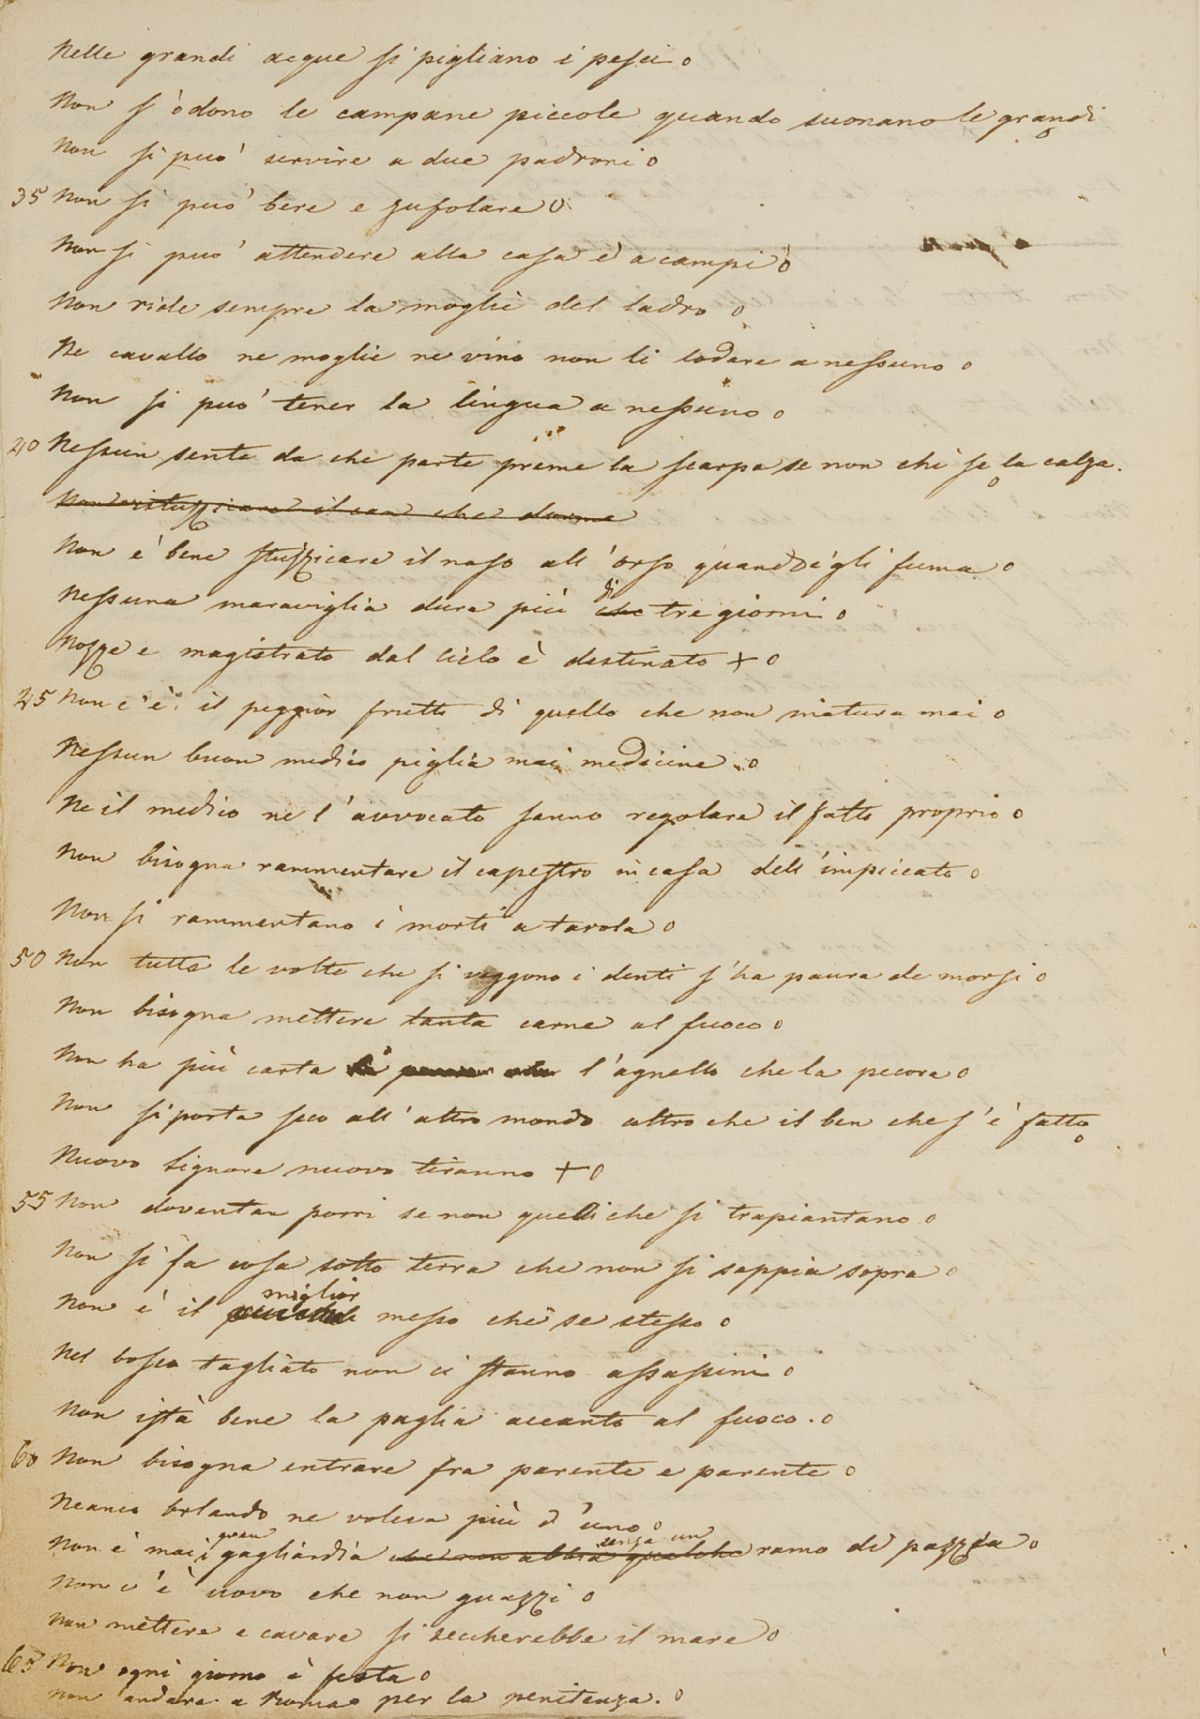 Nelle grandi acque si pigliano i pesci o
Non s'odono le campane piccole quando suonano le grandi o
Non si può servire a due padroni o
35 Non si può bere e zufolare o
Non si può attendere alla casa e a campi o
Non ride sempre la moglie del ladro o
Ne cavallo ne moglie ne vino non li lodare a nessuno o
Non si può tener la lingua a nessuno o
40 Nessun sente da che parte preme la scarpa se non chi se la calza. o
Non istuzzicare il can che dorme
Non è bene stuzzicare il naso all'orso quand'egli fuma o
Nessuna maraviglia dura più che di tre giorni o
Nozze e magistrato dal cielo è destinato + o
45 Non c'è il peggior frutto di quello che non matura mai o
Nessun buon medico piglia mai medicine o
Ne il medico ne l'avvocato sanno regolare il fatto proprio o
Non bisogna rammentare il capestro in casa dell'impiccato o
Non si rammentano i morti a tavola o
50 Non tutte le volte che si veggono i denti s'ha paura de morsi o
Non bisogna mettere tanta carne al fuoco o
Non ha più carta l'agnello che la pecora o
Non si porta seco all'altro mondo altro che il ben che s'è fatto o
Nuovo signore nuovo tiranno + o
55 Non doventan porri se non quelli che si trapiantano o
Non si fa cosa sotto terra che non si sappia sopra o
Non è il miglior messo che se stesso o
Nel bosco tagliato non ci stanno assassini o
Non istà bene la paglia accanto al fuoco. o
60 Non bisogna entrare fra parente e parente o
Neanco Orlando ne voleva più d'uno o
Non è mai gran gagliardia che non abbia qualche senza un ramo di pazzia o
Non c'è uovo che non guazzi o
Non mettere e cavare si seccherebbe il mare o
65 Non ogni giorno è festa o
Non andare a Roma per la penitenza. o